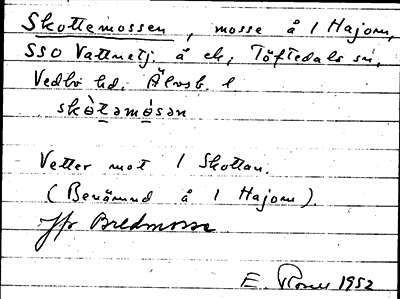 Skottemossen, mosse å 1 Hajom,
SSO Vattnetj. å ek, Töftedals sn,
Vedbo hd. Älvsb. l
skòtəmósən
Vetter mot 1 Skottan.
(Benämnd å 1 Hajom).
Jfr Bredmosse
E. 1952